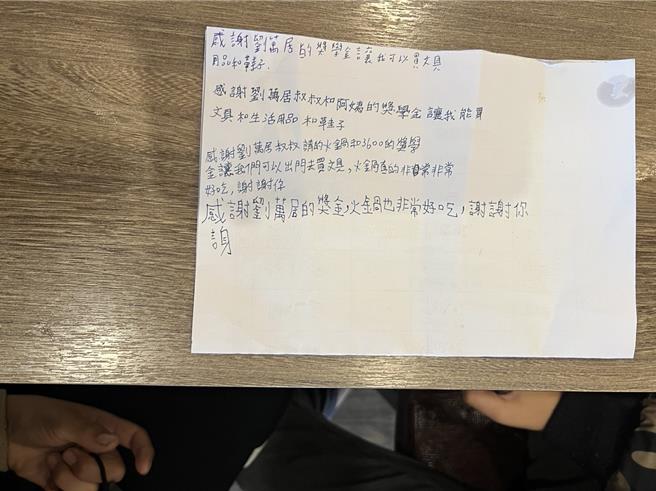 感謝劉萬居的獎學金讓我可以買文具
用品和鞋子.
感謝劉萬居叔叔和阿嬌的獎學金讓我能買
文具和生活用品和鞋子
感謝劉萬居叔叔請的火鍋和3600的獎學
金讓我們可以出門去買文具,火鍋真的非常非常
好吃,謝謝你
感謝劉萬居的獎金,火鍋也非常好吃,謝謝你